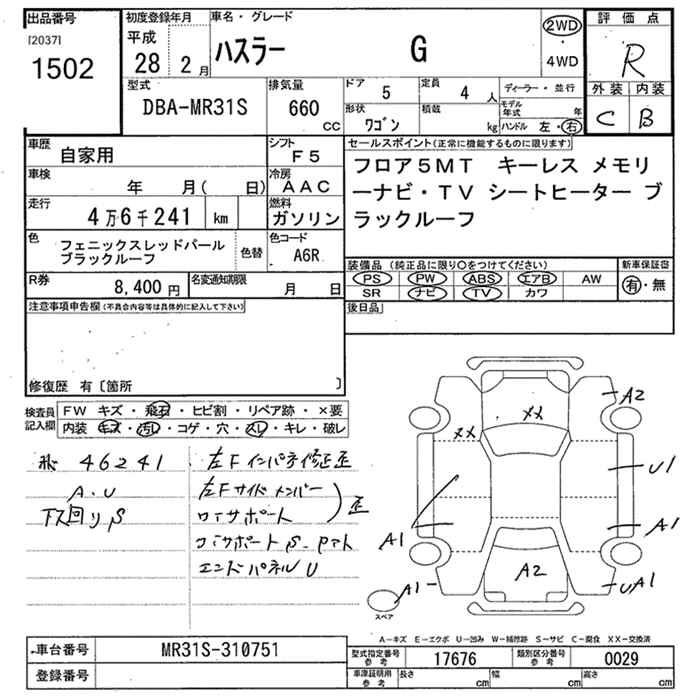 出品番号
[2037]
1502
初度登録年月
平成
28 2月
車名・グレード
ハスラー G
2WD
・
4WD
評価点
R
外装 内装
C B
型式
DBA-MR31S
排気量
660
CC
ドア
5
定員
4 人
ディーラー・並行
形状
ワゴン
積載
kg
モデル年式 年
ハンドル 左・右
車歴
自家用
シフト
F5
車検
年 月( 日)
冷房
AAC
走行
4万6千241 km
燃料
ガソリン
色
フェニックスレッドパール
ブラックルーフ
色替
色コード
A6R
R券
8,400円
名変通知期限
月 日
セールスポイント(正常に機能するものに限ります)
フロア5MT キーレス メモリ
ーナビ・TV シートヒーター ブ
ラックルーフ
装備品 (純正品に限り○をつけてください)
新車保証書
PS PW ABS エアB AW
SR ナビ TV カワ
有・無
注意事項申告欄(不具合内容等は具体的に記入して下さい)
後日品
修復歴 有〔箇所 〕
検査員
記入欄
FW キズ・飛石・ヒビ割・リペア跡・×要
内装 キズ・汚れ・コゲ・穴・スレ・キレ・破レ
46241
A.U
下回りS
左Fインパネ修正歪
左Fサイドメンバー
コアサポート
歪
コアサポートS
エンドパネルU
A2
XX
XX
U1
A1
A1
A1
A2
UA1
スペア
A-キズ E-エクボ U-凹み W-補修跡 S-サビ C-腐食 XX-交換済
車台番号
MR31S-310751
登録番号
型式指定番号
参考
17676
類別区分番号
参考
0029
車庫証明用
参考
長さ cm
幅 cm
高さ cm